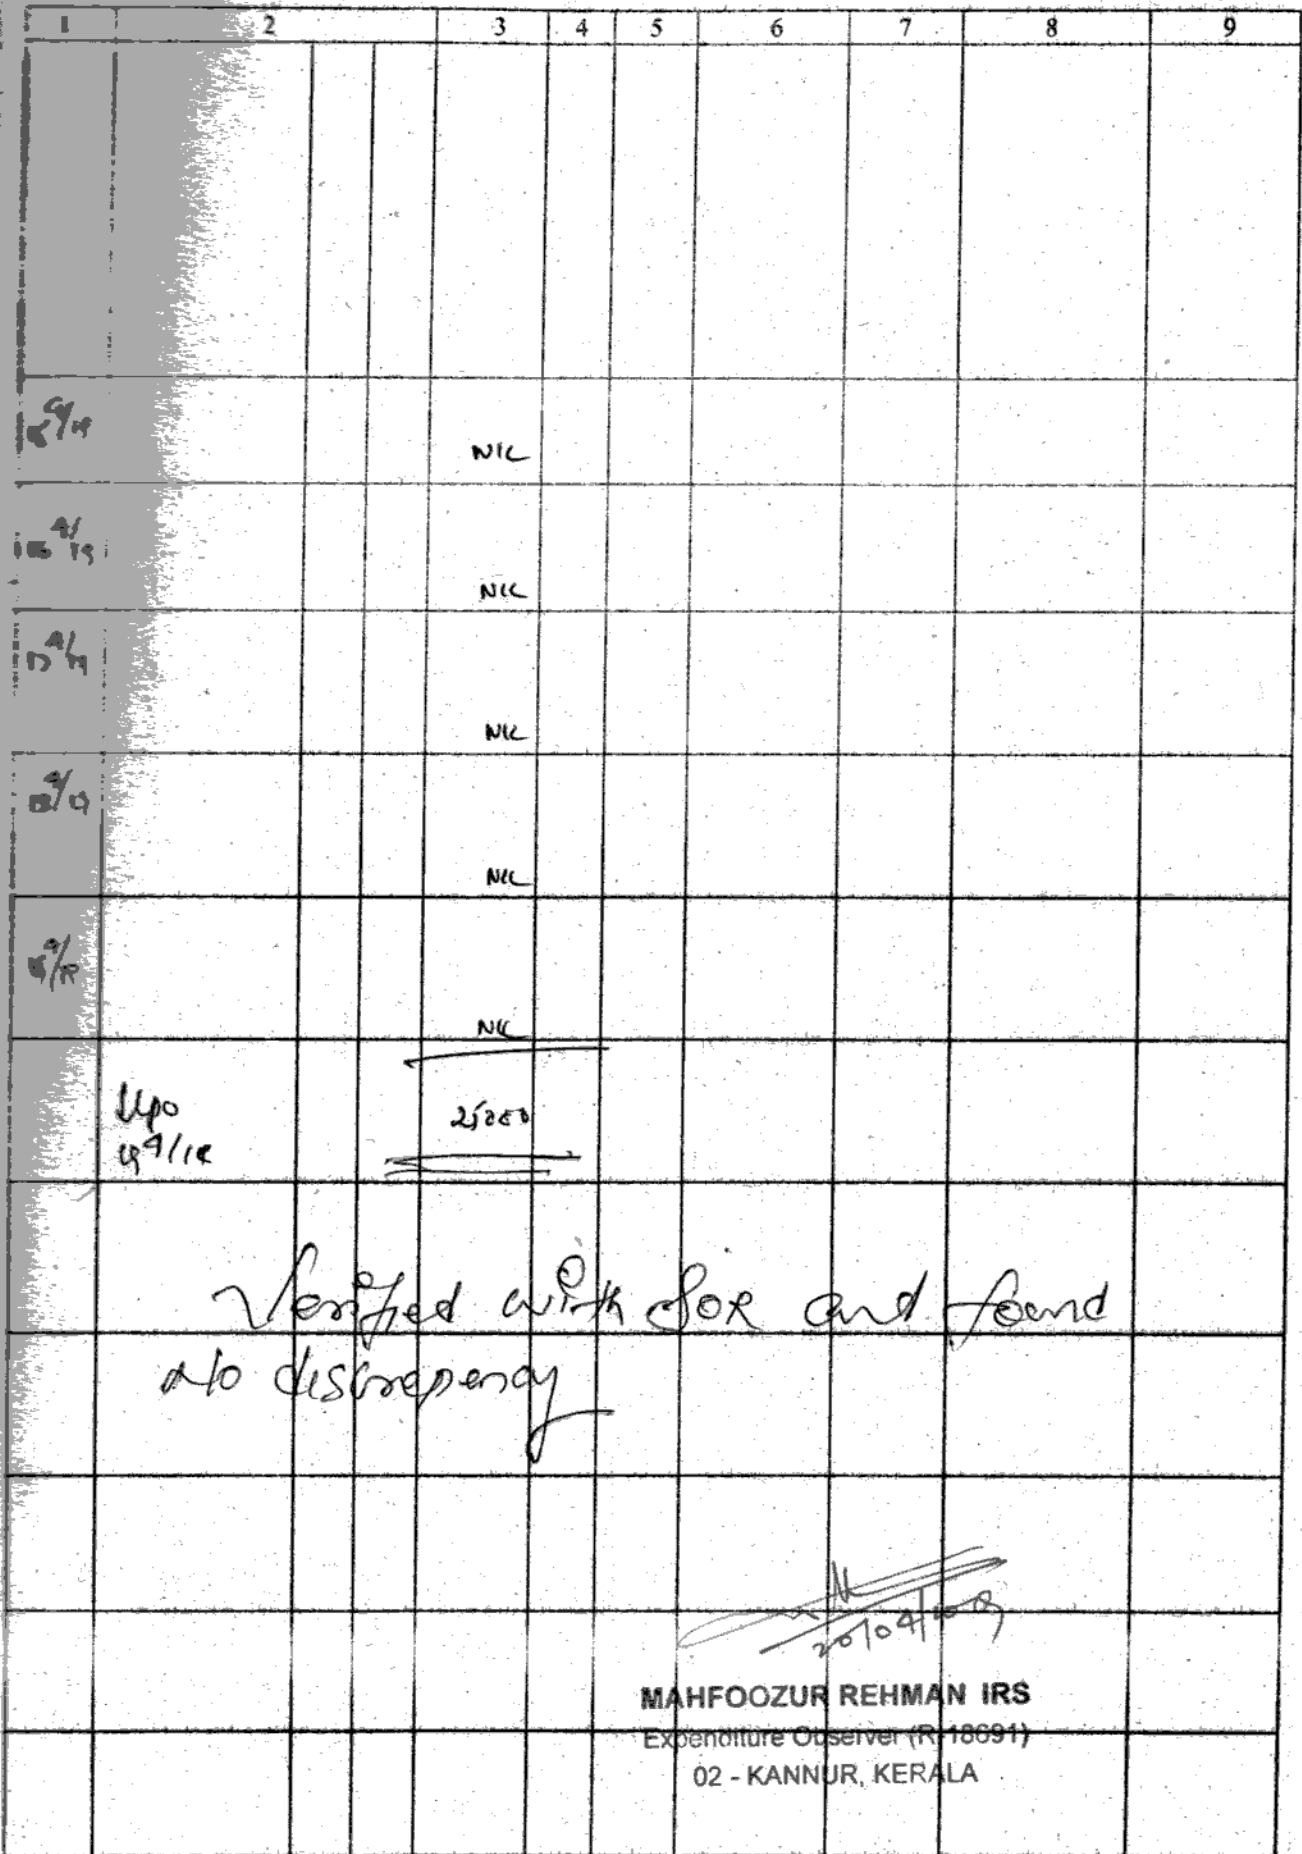 1 2 3 4 5 6 7 8 9
NIL
NIL
NIL
NIL
NIL
Upo
25000
Verified with SOR and found
No discrepency
20/04/2019
MAHFOOZUR REHMAN IRS
Expenditure Observer (R-18691)
02 - KANNUR, KERALA